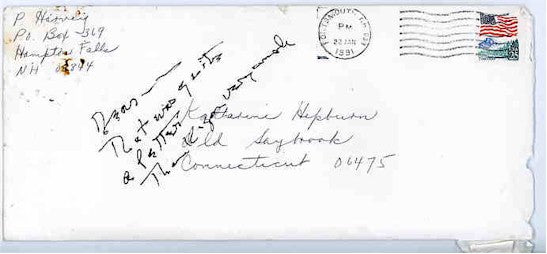 P
PO. Box 369
Hampton Falls
NH
PORTSMOUTH, NH 038
PM
22 JAN
1991
Dear —
That was quite
a letter
Thank you very much
Katharine Hepburn
Old Saybrook
Connecticut 06475